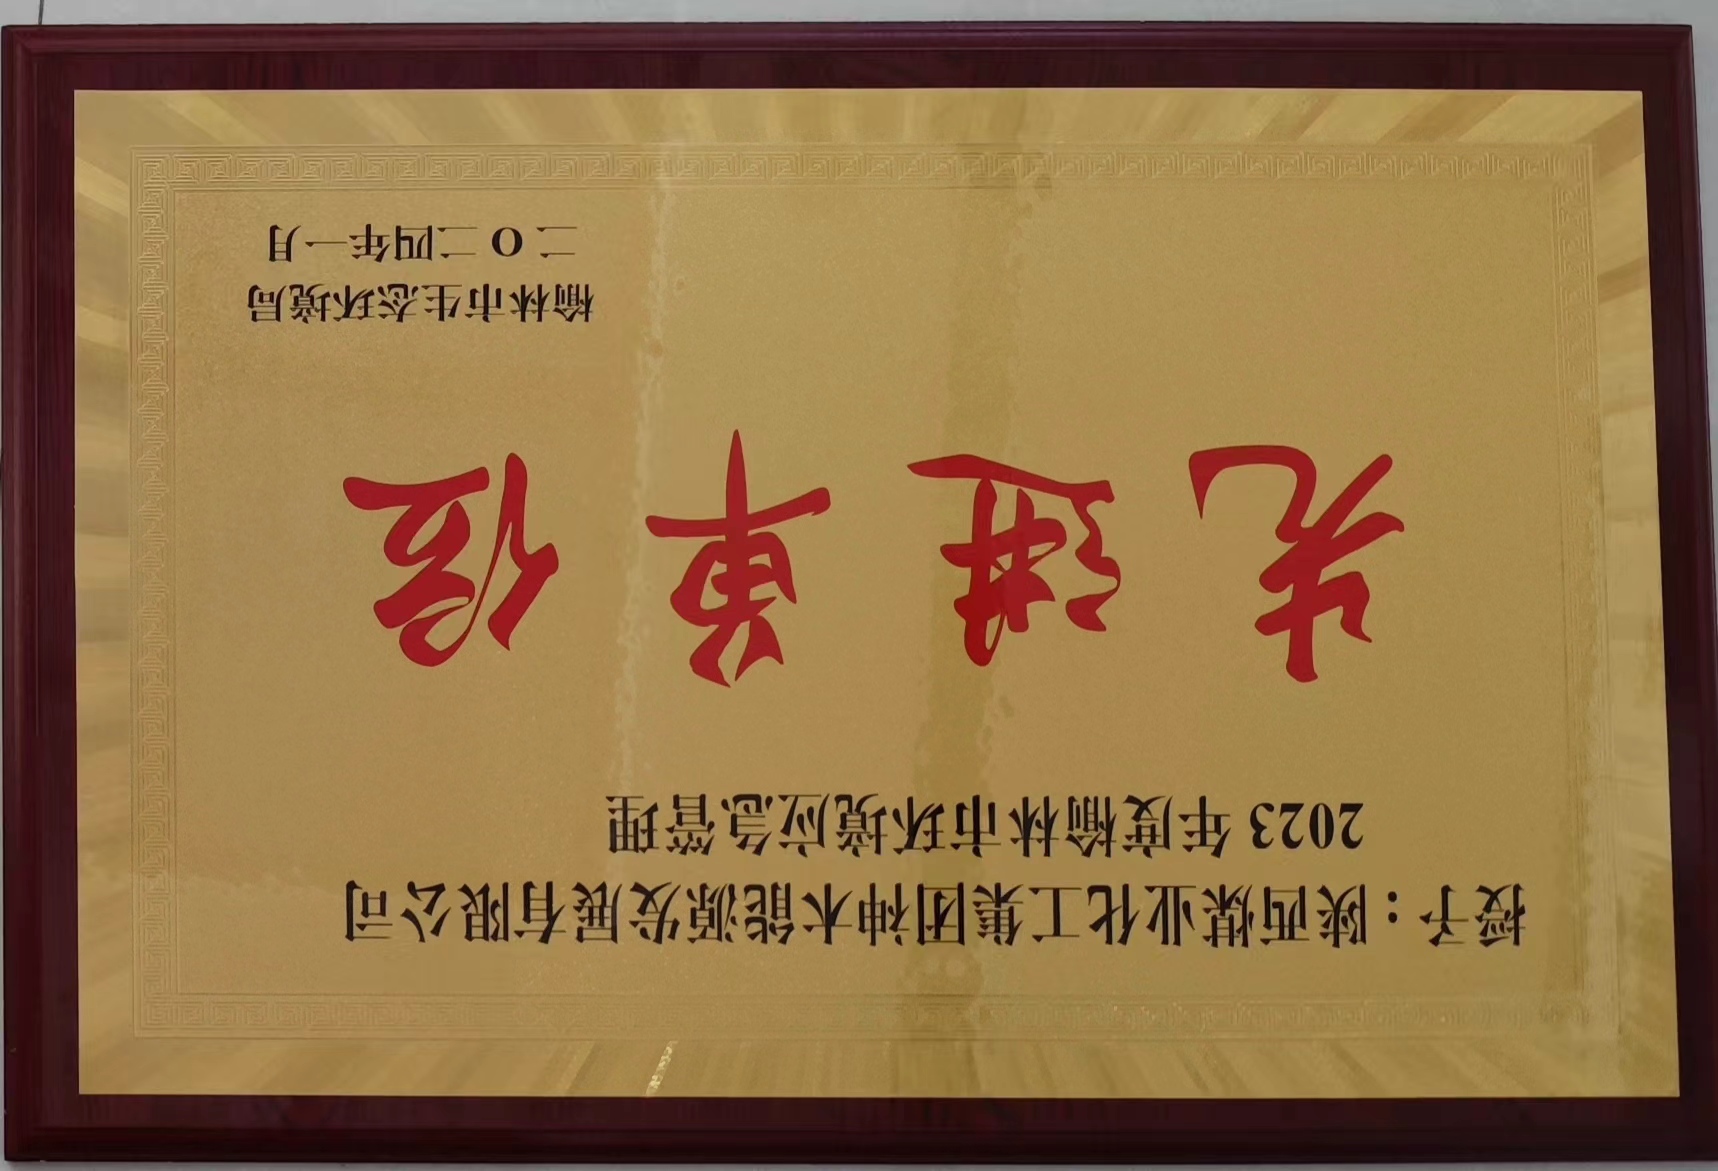 授予：陕西煤业化工集团神木能源发展有限公司
2023年度榆林市环境应急管理
先进单位
榆林市生态环境局
二〇二四年一月